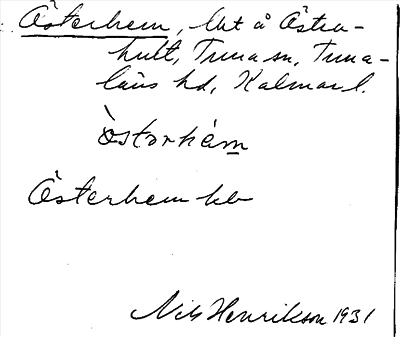 Österhem, lht å Östra-
hult, Tuna sn, Tuna-
läns hd, Kalmar l.
Österhem kb
Nils Henrikson 1931